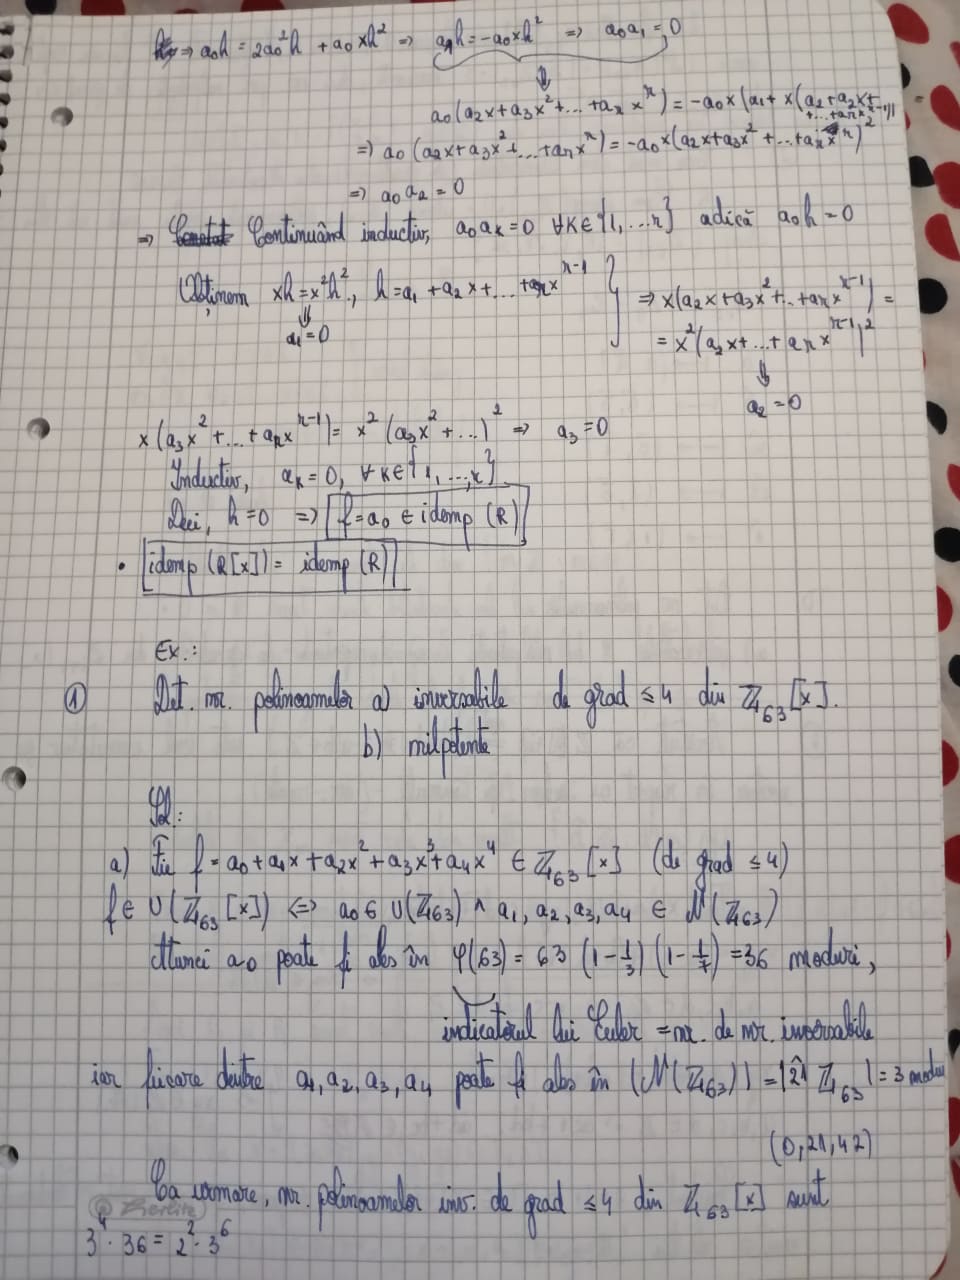 ⇒ a₀h = 2a₀²h + a₀xh² ⇒ a₀h = -a₀xh² ⇒ a₀a₁ = 0
⇓
a₀(a₂x + a₃x² + ... + aₙxⁿ) = -a₀x(a₁ + x(a₂ + a₂x +
⇒ a₀(a₂x + a₃x² + ... + aₙxⁿ) = -a₀x(a₂x + a₃x² + ... + aₙxⁿ)²
⇒ a₀a₂ = 0
⇒ Continuând inductiv, a₀aₖ = 0 ∀k∈{1, ...n} adică a₀h = 0
Obținem xh = x²h², h = a₁ + a₂x + ... + aₙxⁿ⁻¹ } ⇒ x(a₂x + a₃x² + .. + aₙxⁿ⁻¹) =
⇓
a₁ = 0
= x²(a₂x + ... + aₙxⁿ⁻¹)²
⇓
a₂ = 0
x(a₃x² + ... + aₙxⁿ⁻¹) = x²(a₃x² + ...)² ⇒ a₃ = 0
Inductiv, aₖ = 0, ∀k∈{1, ..., n}
Deci, h = 0 ⇒ f = a₀ ∈ idemp (R)
• idemp (R[x]) = idemp (R)
Ex.:
① Det. nr. polinoamelor a) inversabile de grad ≤ 4 din ℤ₆₃[x].
b) nilpotente
Sol.:
a) Fie f = a₀ + a₁x + a₂x² + a₃x³ + a₄x⁴ ∈ ℤ₆₃[x] (de grad ≤ 4)
f ∈ U(ℤ₆₃[x]) ⇔ a₀ ∈ U(ℤ₆₃) ∧ a₁, a₂, a₃, a₄ ∈ N(ℤ₆₃)
Atunci a₀ poate fi ales în φ(63) = 63 (1 - 1/3) (1 - 1/7) = 36 moduri,
indicatorul lui Euler = nr. de nr. inversabile
iar fiecare dintre a₁, a₂, a₃, a₄ poate fi ales în |N(ℤ₆₃)| = |2̂1̂ ℤ₆₃| = 3 moduri
(0, 21, 42)
Ca urmare, nr. polinoamelor inv. de grad ≤ 4 din ℤ₆₃[x] sunt
3⁴ · 36 = 2² · 3⁶